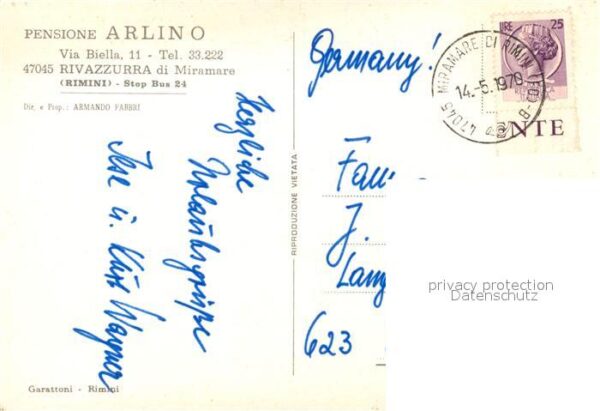 PENSIONE ARLINO
Via Biella, 11 - Tel. 33.222
47045 RIVAZZURRA di Miramare
(RIMINI) - Stop Bus 24
Dir. e Prop.: ARMANDO FABBRI
Herzliche
Urlaubsgrüße
Ilse u. Kurt Wagner
Garattoni - Rimini
RIPRODUZIONE VIETATA
Germany!
LIRE 25
47045 MIRAMARE DI RIMINI (FO)
14.-5.1979
NTE
Fam
J.
Lang
623
privacy protection
Datenschutz